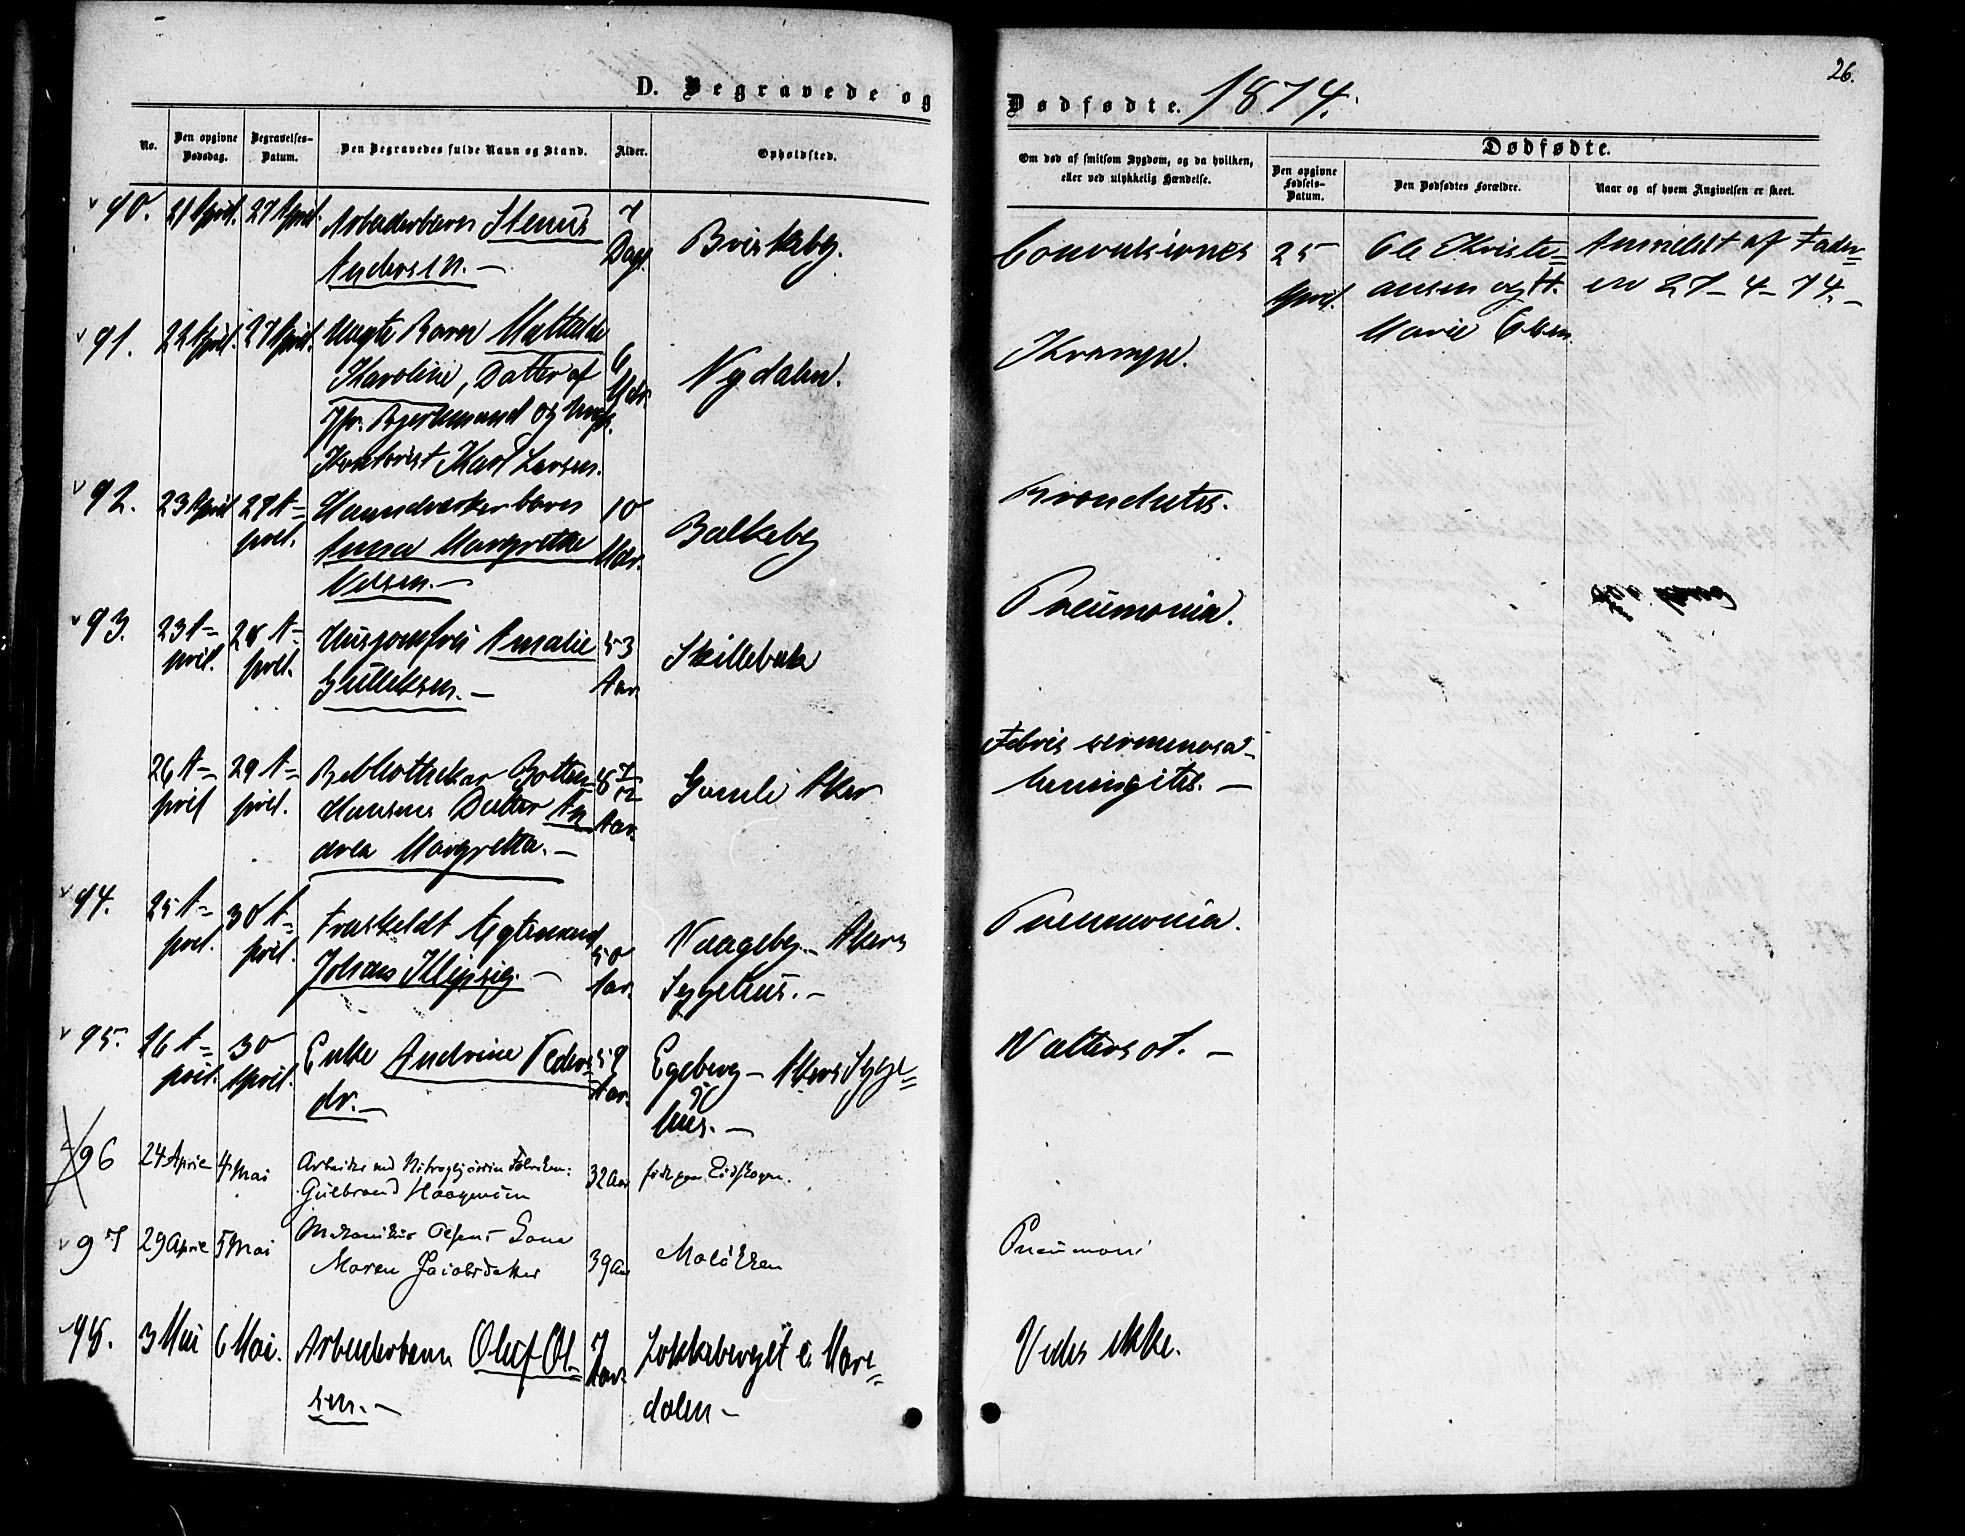 26.
D. Begravede og Dødfødte. 1874.
No.
Den opgivne Dødsdag.
Begravelses-Datum.
Den Begravedes fulde Navn og Stand.
Alder.
Opholdssted.
Om død af smitsom Sygdom, og da hvilken,
eller ved ulykkelig Hændelse.
Dødfødte.
Den opgivne Fødsels-Datum.
Den Dødfødtes Forældre.
Naar og af hvem Angivelsen er skeet.
90. 21 April. 27 April. Arbeiderbarn
Andersen. —
7 Dage
Briskeby.
Convulsiones
25 April.
Ole Christi=
ansen og H.
Marie Olsen
Anmeldt af Fader=
en 27-4-74. —
91. 22 April. 27 April. Uægte Barn Mathilde
Karoline, Datter af
Karl Larsen.
6 Mdr.
Nydalen.
Krampe.
92. 23 April 27 A=
pril.
Haandværkerbarn
Anna Margrethe
Nilsen. —
10 Mdr.
Balkeby
Bronchitis.
93. 23 A=
pril.
28 A=
pril.
Husjomfru Amalie
Gulliksen. —
53 Aar
Skillebæk
Pneumonia.
26 A=
pril
29 A=
pril.
Bibliothekar Botten
Hansens Datter An
drea Margretha. —
8 7/12 Aar.
Gamle Aker
Febris verminosa —
meningitis. —
94. 25 A=
pril.
30 A=
pril.
Fraskildt Ægtemand
Johan —
50 Aar.
Vaageby — Akers
Sygehus. —
Pneumonia.
95. 16 A=
pril.
30 April.
Enke Andrine Peders
dr. —
59 Aar.
Egeberg — Akers Syge=
hus. —
Vattersot. —
96 24 April 4 Mai
Arbeider ved Nitroglycerin Fabriken:
Gulbrand
32 Aar
født paa Eidskogen.
97 29 April 5 Mai
Mekanikus Olsens Kone
Maren Jacobsdatter
39 Aar
Pneumoni
98. 3 Mai 6 Mai.
Arbeiderbarn Oluf Ol=
sen. —
7 Aar.
i Mari=
dalen —
Vides ikke.